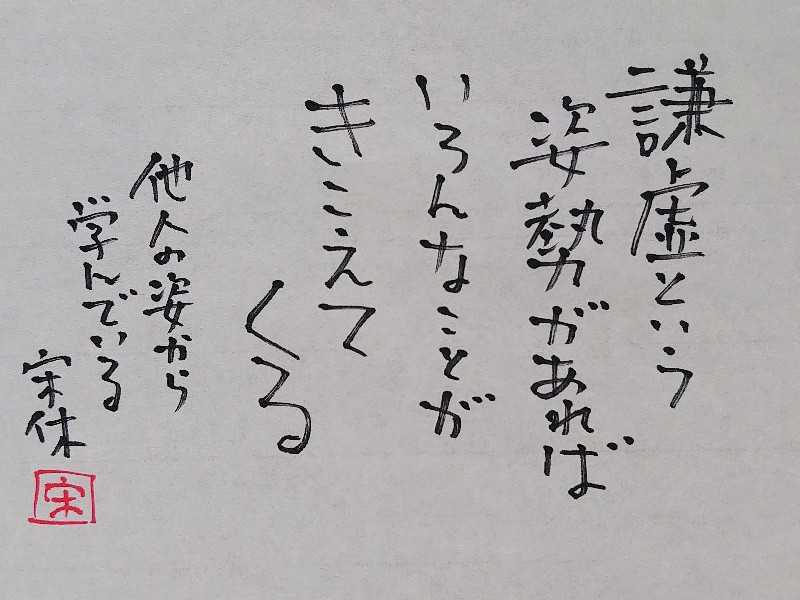 謙虚という
姿勢があれば
いろんなことが
きこえて
くる
他人の姿から
学んでいる
宋休
宋